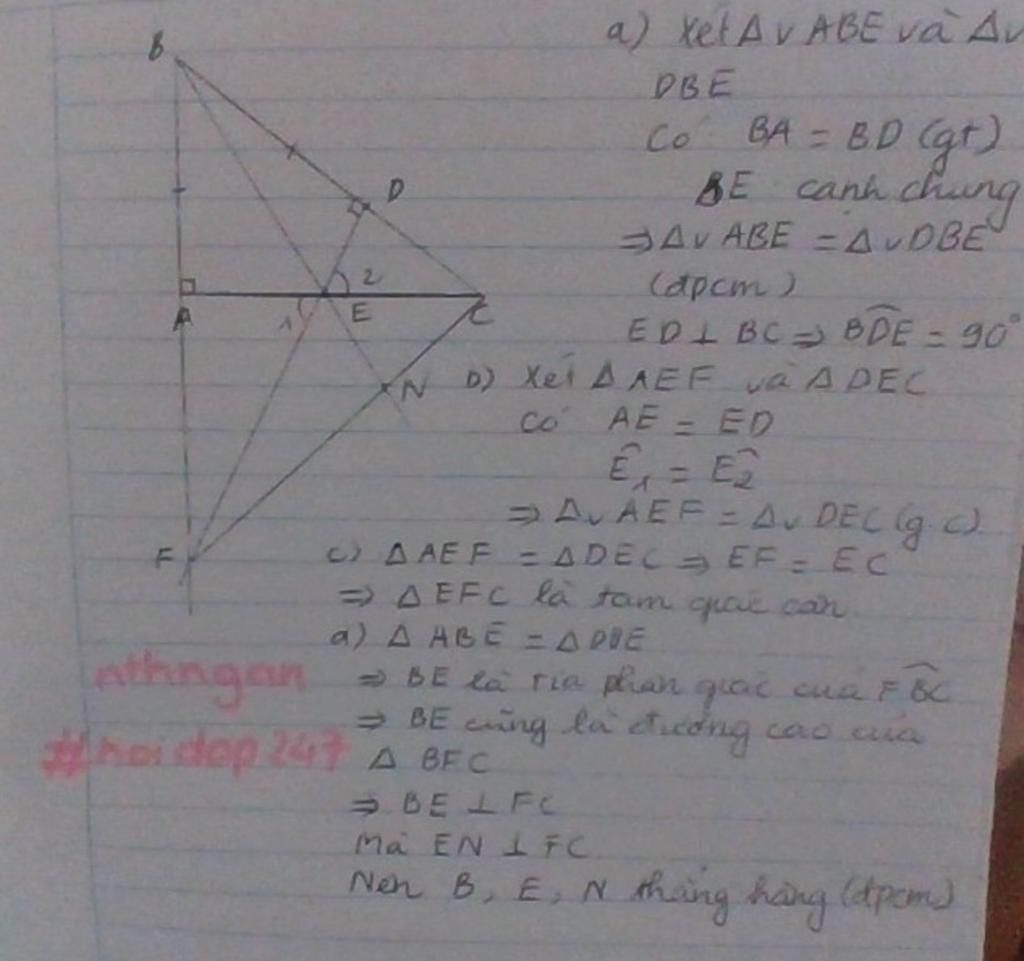 B
D
2
A
1
E
C
N
F
a) Xét Δv ABE và Δv
DBE
Có BA = BD (gt)
BE cạnh chung
⇒ Δv ABE = Δv DBE
(đpcm)
ED ⊥ BC ⇒ \widehat{BDE} = 90°
b) Xét Δ AEF và Δ DEC
Có AE = ED
\widehat{E_1} = \widehat{E_2}
⇒ Δv AEF = Δv DEC (g.c)
c) Δ AEF = Δ DEC ⇒ EF = EC
⇒ Δ EFC là tam giác cân
a) Δ ABE = Δ DBE
⇒ BE là tia phân giác của \widehat{FBC}
⇒ BE cũng là đường cao của
Δ BFC
⇒ BE ⊥ FC
Mà EN ⊥ FC
Nên B, E, N thẳng hàng (đpcm)
nthngan
#hoidap247